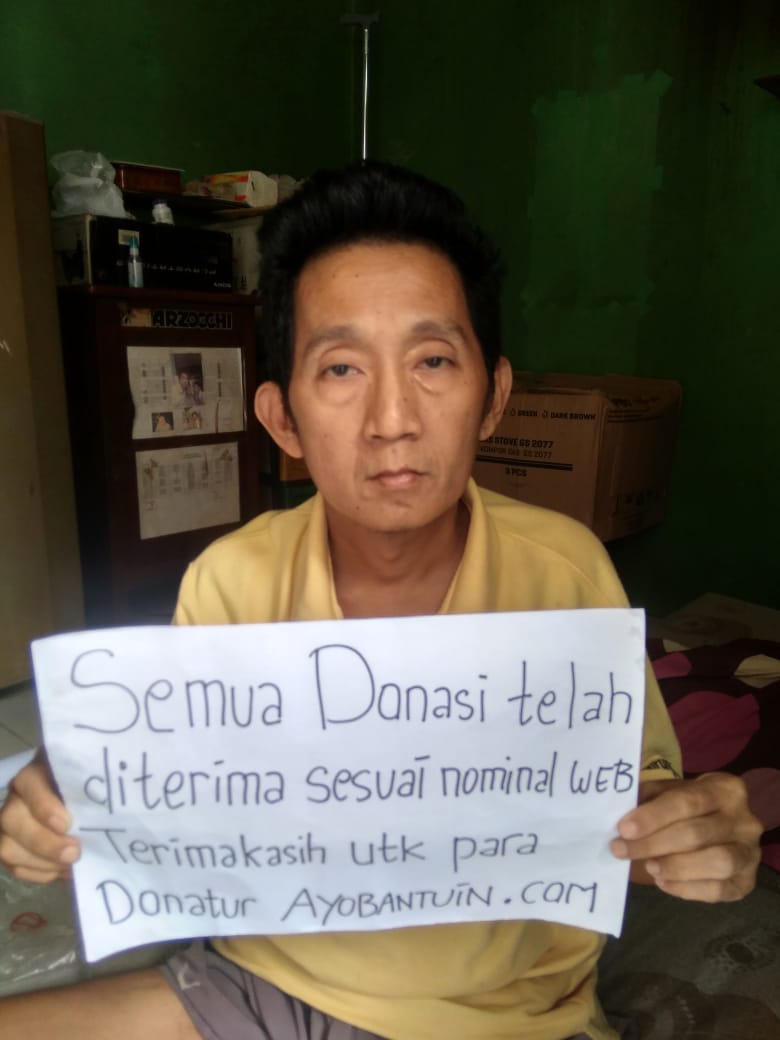 ARZOCCHI
SONY
GREEN DARK BROWN
STOVE GS 2077
KOMPOR GAS GS 2077
3 PCS
Semua Donasi telah
diterima sesuai nominal WEB
Terimakasih utk para
Donatur AYOBANTUIN.COM